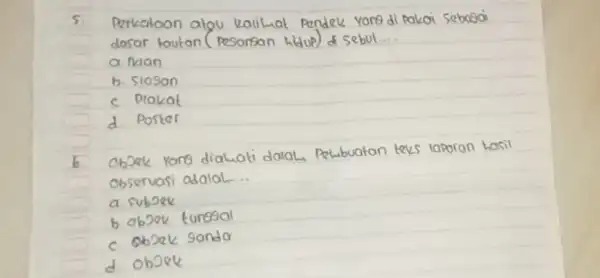 5. Perkataan atau kalimat pendek yang di pakai sebagai
dasar tautan (pesansan hidup) di sebut...
a. Ikian
b. slogan
c. Plakat
d. Poster
6 objek yang diamati dalam pembuatan teks laporan hasil
observasi adalah...
a subjek
b objek tunggal
c objek ganda
d objek